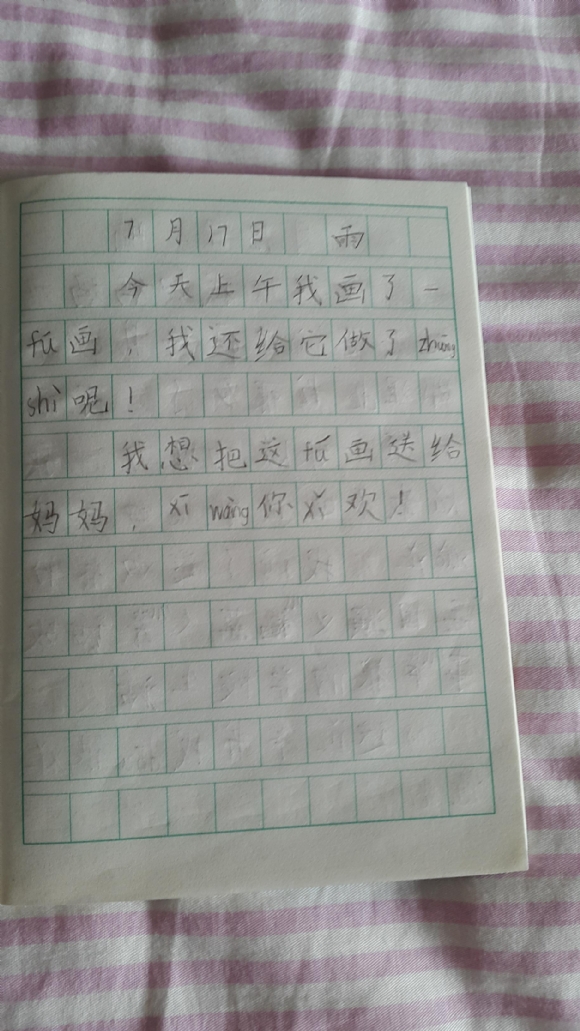 7月17日 雨
今天上午我画了一
fú画，我还给它做了zhuāng
shì呢！
我想把这fú画送给
妈妈，xī wàng你xǐ欢！